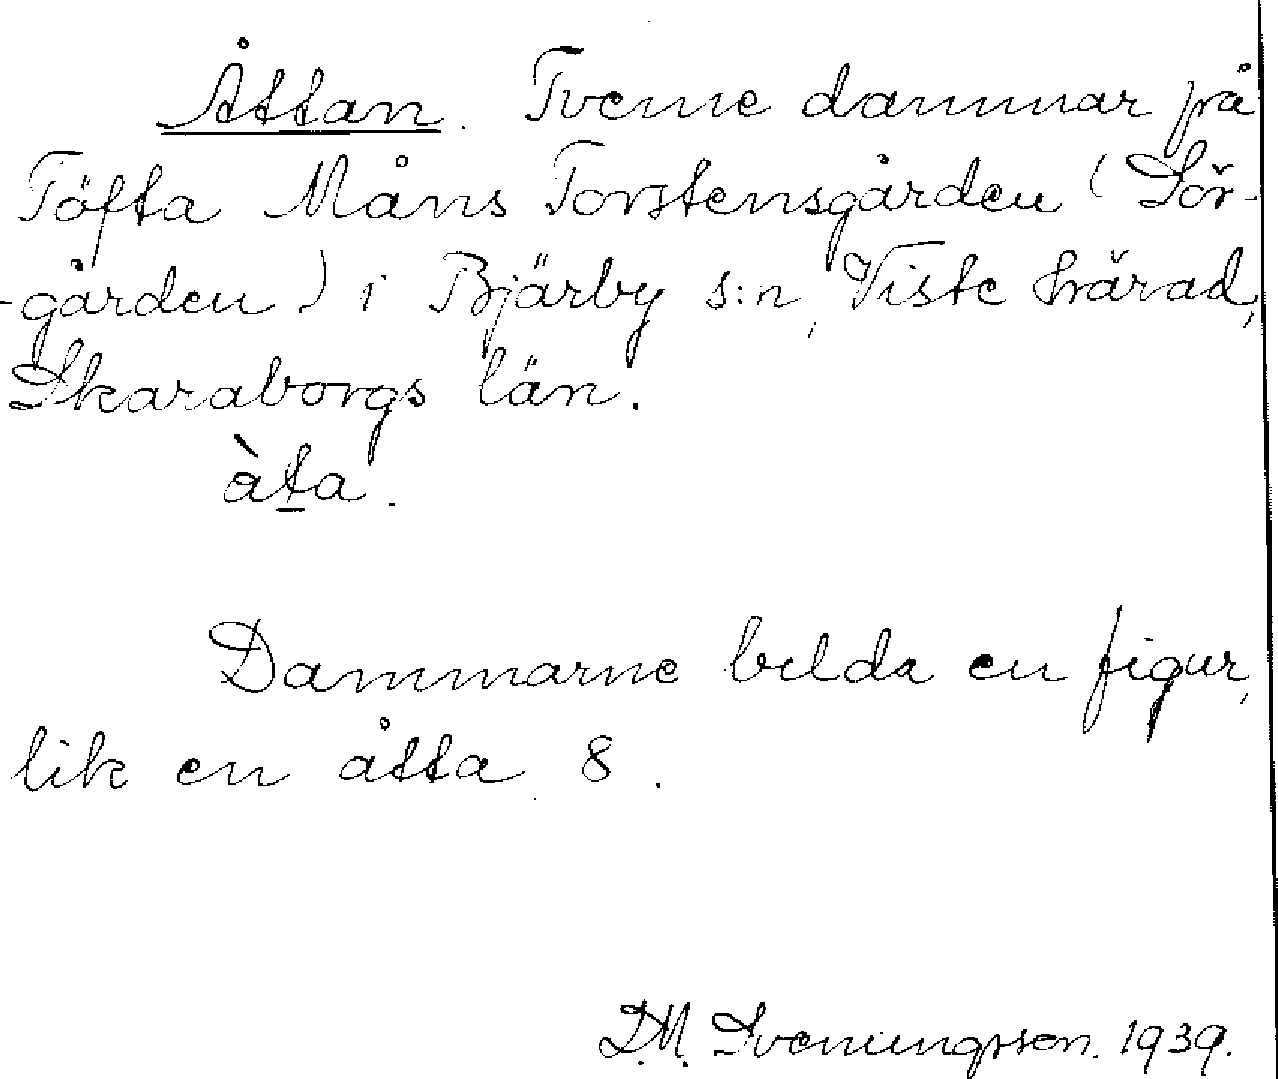 Åttan. Tvenne dammar på
Töfta Måns Torstensgården (Sör-
-gården) i Bjärby s:n, Viste härad,
Skaraborgs län.
àta.
Dammarne bilda en figur,
lik en åtta 8.
D.M. Svenungsson. 1939.